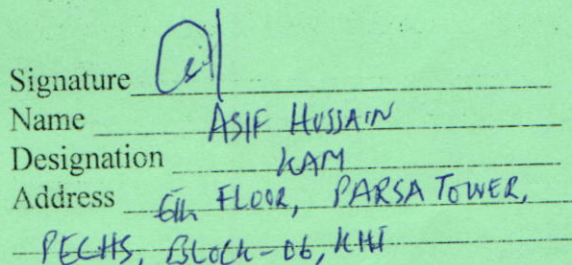 Signature
Name ASIF HUSSAIN
Designation KAM
Address 6th FLOOR, PARSA TOWER,
PECHS, BLOCK-06, KHI